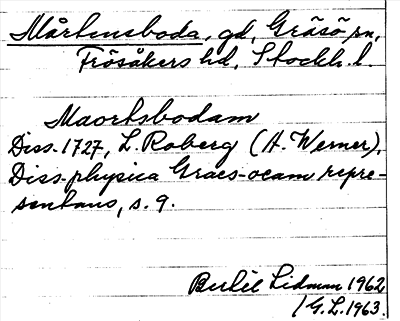 Mårtensboda, gd, Gräsö sn,
Frösåkers hd, Stockh. l.
Maortsbodam
Diss. 1727, L. Roberg (H. Werner),
Diss. physica Graes-oeam repre-
sentans, s. 9.
Lidman 1962
/ G. L. 1963.